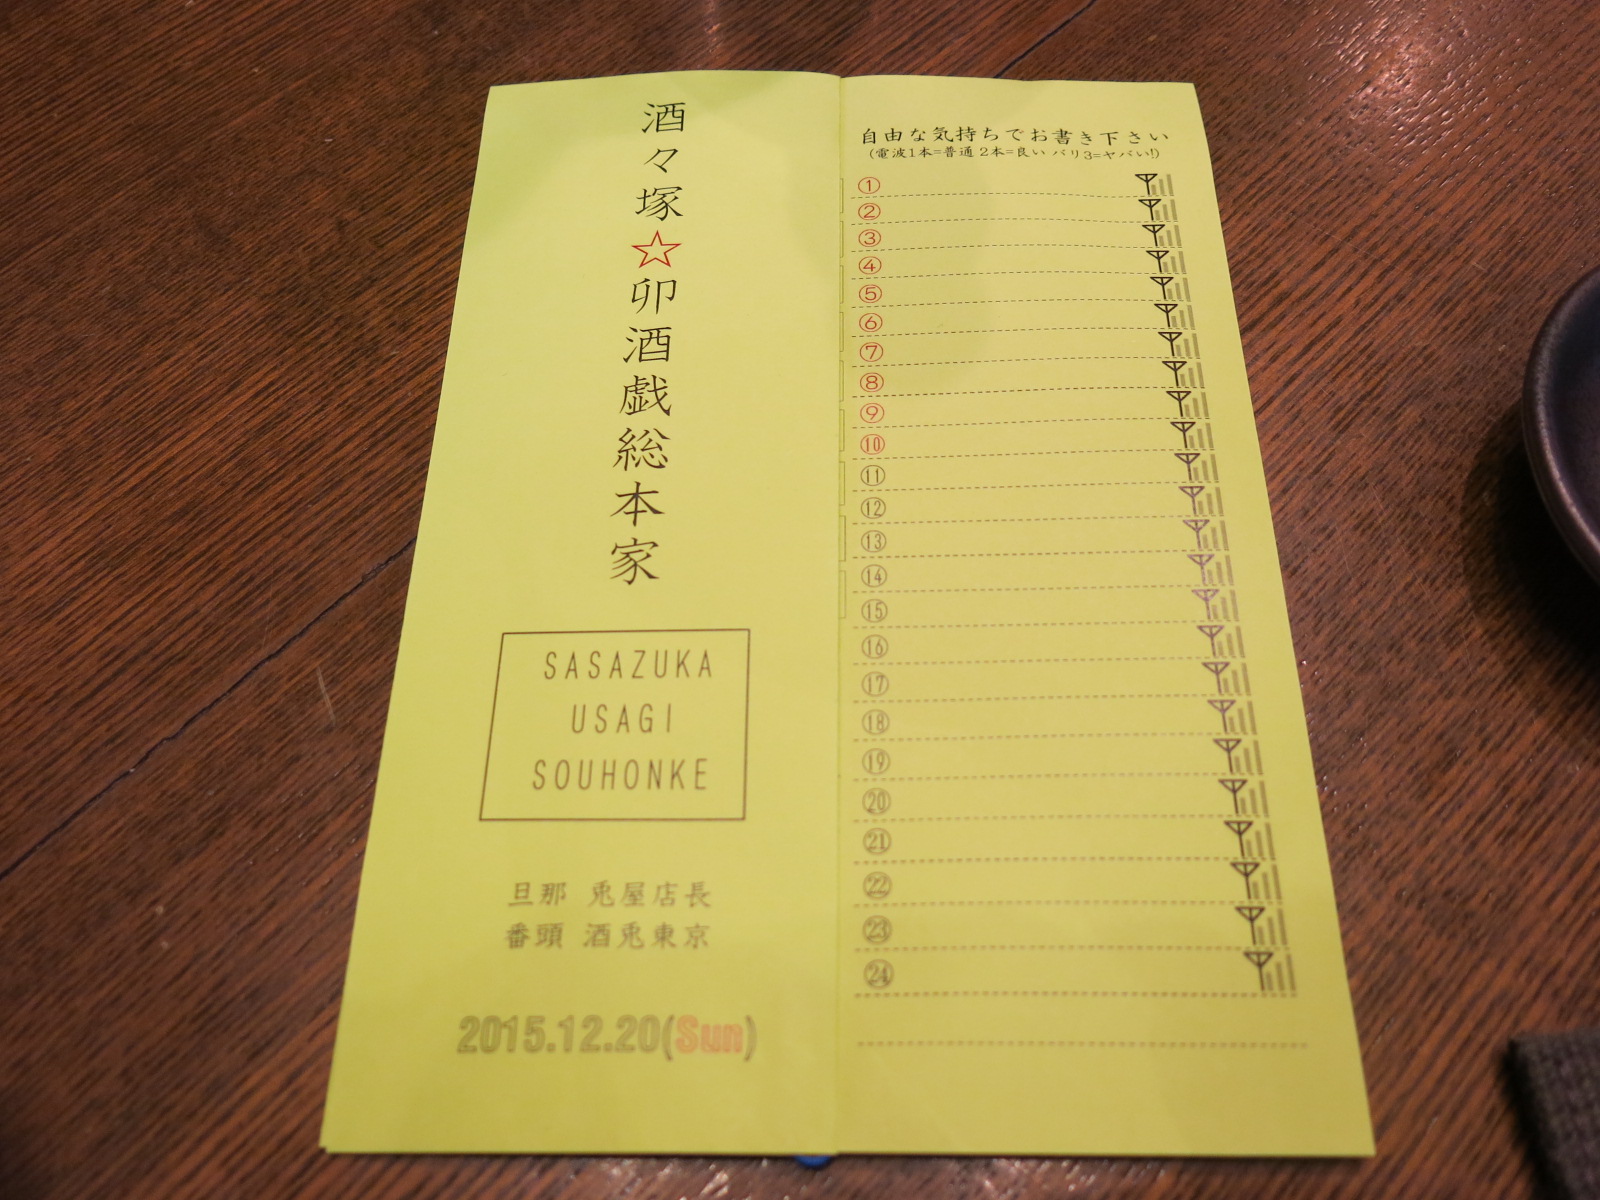 酒々塚☆卯酒戯総本家
SASAZUKA
USAGI
SOUHONKE
旦那 兎屋店長
番頭 酒兎東京
2015.12.20(Sun)
自由な気持ちでお書き下さい
(電波1本=普通 2本=良い バリ3=ヤバい!)
①
②
③
④
⑤
⑥
⑦
⑧
⑨
⑩
⑪
⑫
⑬
⑭
⑮
⑯
⑰
⑱
⑲
⑳
㉑
㉒
㉓
㉔